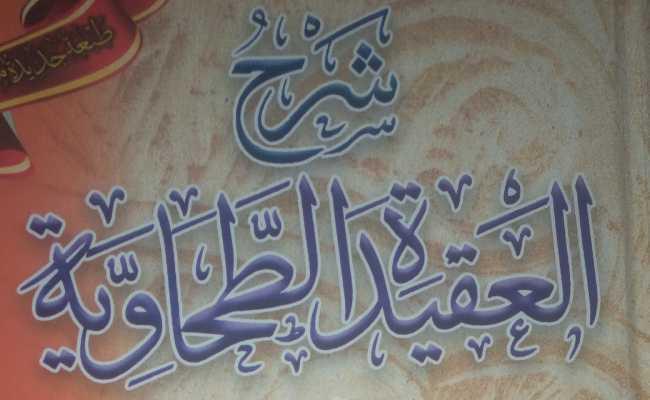 طبعة جديدة
شرح
العقيدة الطحاوية